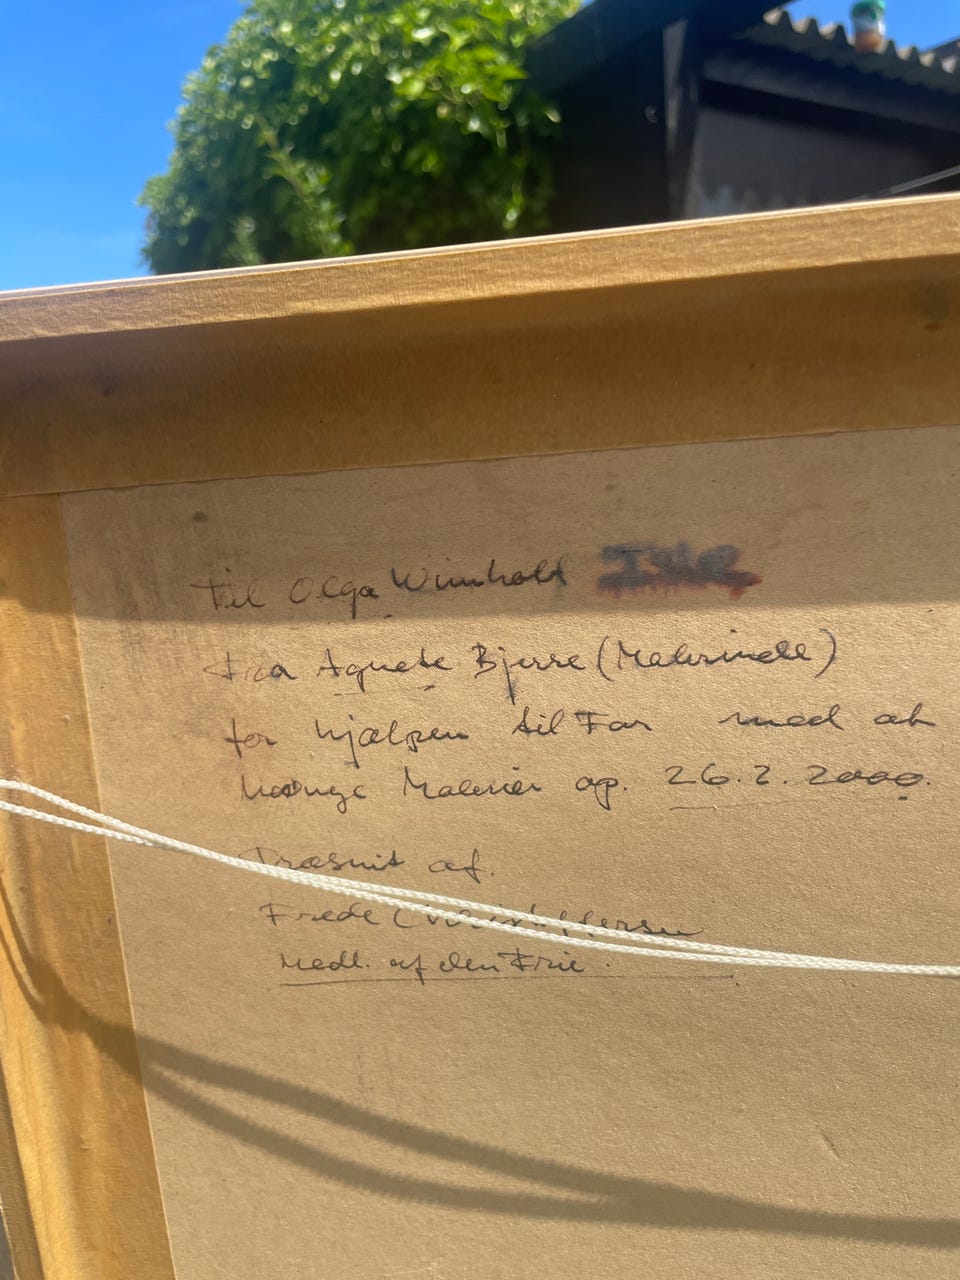 Til Olga Wimholt
fra Agnete Bjerre (Malerinde)
for hjælpen til Far med at
hænge Malerier op. 26.2.2000.
Træsnit af.
Frede Christoffersen
Medl. af den Frie.